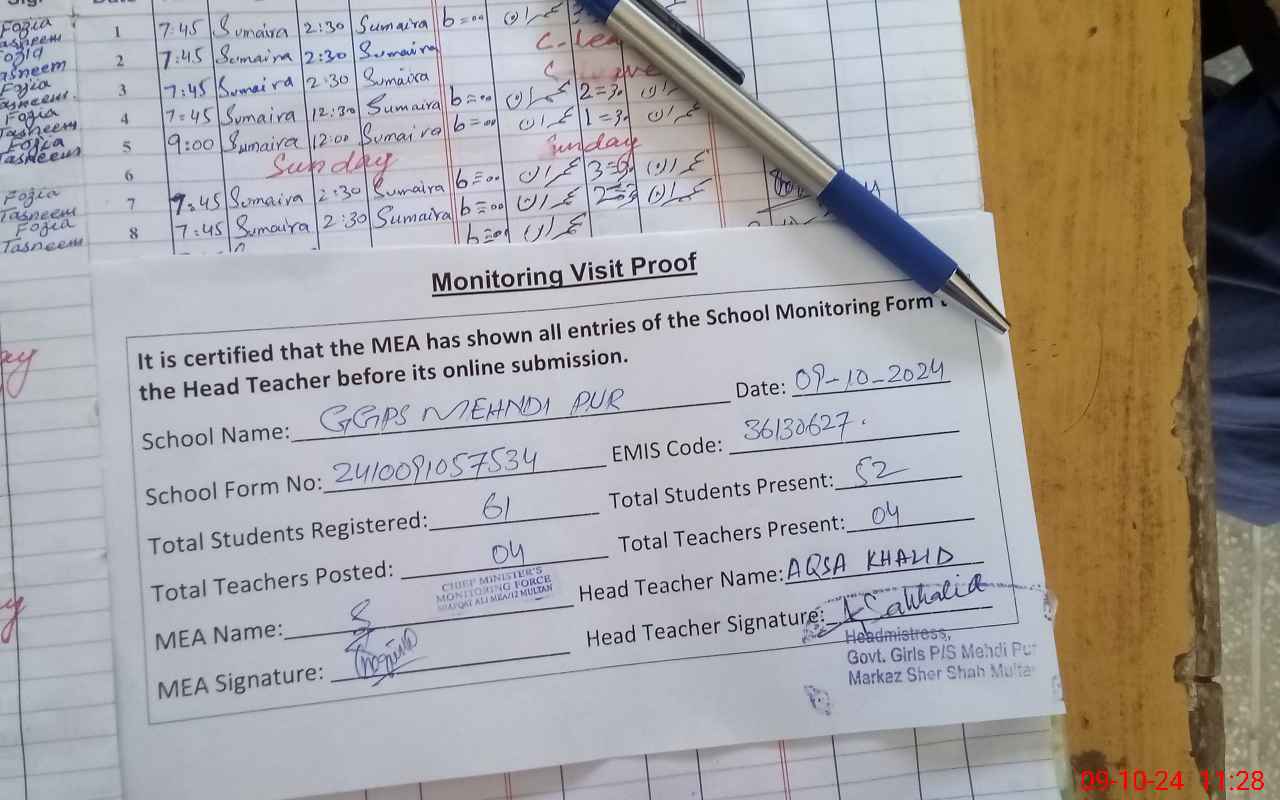 Fozia
Tasneem
1 7:45 Sumaira 2:30 Sumaira
Fozia
Tasneem
2 7:45 Sumaira 2:30 Sumaira
Fozia
Tasneem
3 7:45 Sumaira 2:30 Sumaira
Fozia
Tasneem
4 7:45 Sumaira 12:30 Sumaira
Fozia
Tasneem
5 9:00 Sumaira 12:00 Sumaira
6 Sunday Sunday
Fozia
Tasneem
7 7:45 Sumaira 2:30 Sumaira
Fozia
Tasneem
8 7:45 Sumaira 2:30 Sumaira
Monitoring Visit Proof
It is certified that the MEA has shown all entries of the School Monitoring Form
the Head Teacher before its online submission.
School Name: GGPS MEHNDI PUR Date: 09-10-2024
School Form No: 2410091057534 EMIS Code: 36130627.
Total Students Registered: 61 Total Students Present: 52
Total Teachers Posted: 04 Total Teachers Present: 04
CHIEF MINISTER'S
MONITORING FORCE
SHAFQAT ALI MEA/12 MULTAN
MEA Name: Head Teacher Name: AQSA KHALID
MEA Signature: Head Teacher Signature:
Headmistress,
Govt. Girls P/S Mehdi Pur
Markaz Sher Shah Multan
09-10-24 11:28